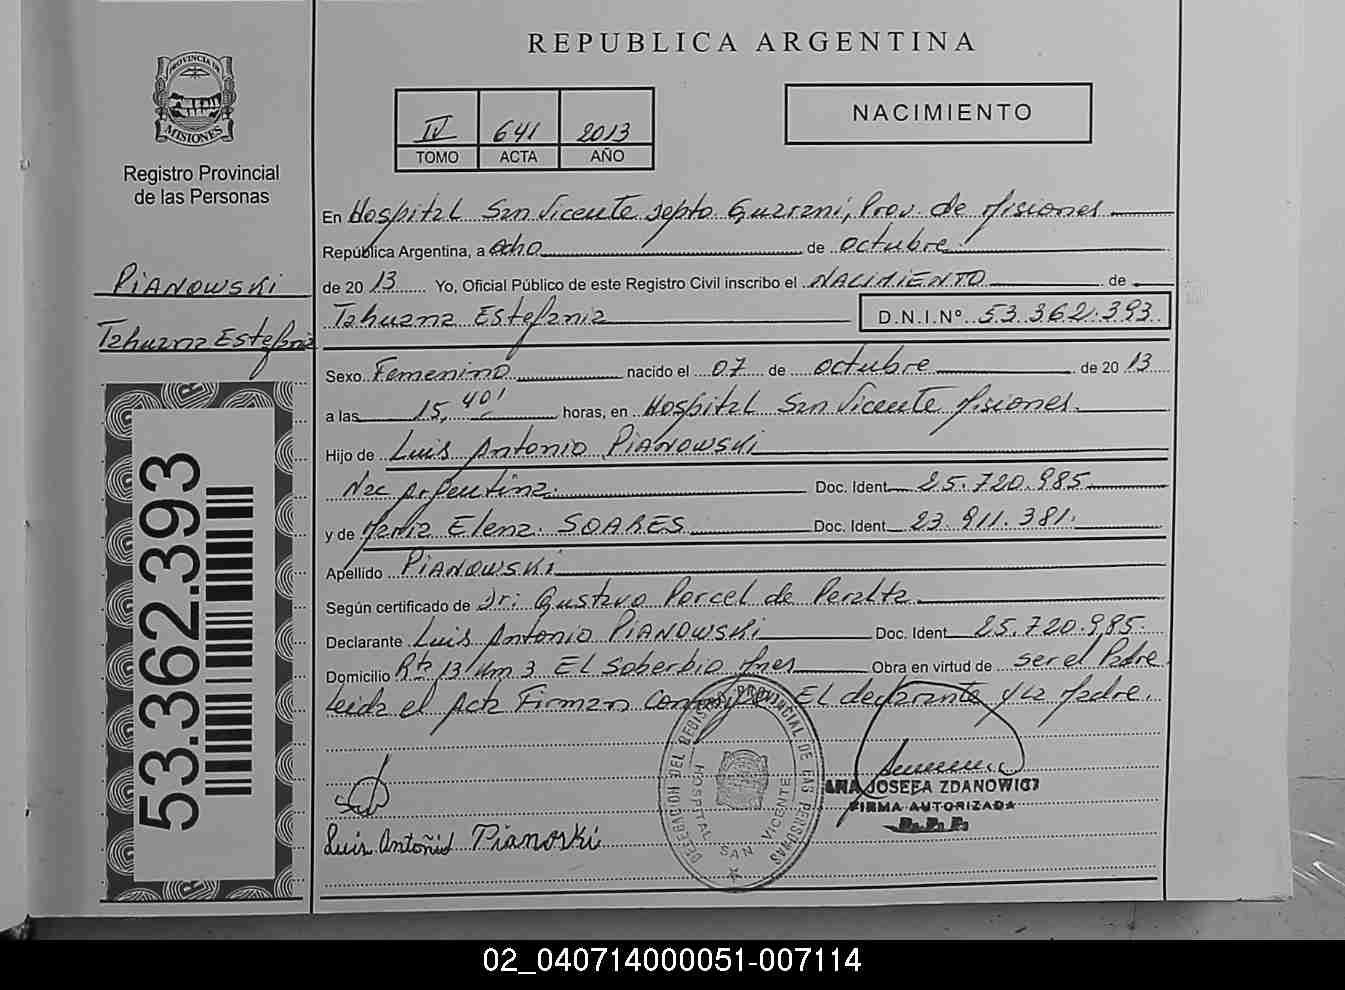 PROVINCIA DE
MISIONES
Registro Provincial
de las Personas
PIANOWSKI
Tahuana Estefania
53.362.393
REPUBLICA ARGENTINA
IV 641 2013
TOMO ACTA AÑO
NACIMIENTO
En Hospital San Vicente Depto Guarani, Prov. de Misiones
República Argentina, a ocho de octubre
de 20 13 Yo, Oficial Público de este Registro Civil inscribo el NACIMIENTO de
Tahuana Estefania D.N.I.Nº 53.362.393
Sexo Femenino nacido el 07 de octubre de 20 13
a las 15,40' horas, en Hospital San Vicente Misiones.
Hijo de Luis Antonio PIANOWSKI
Nac Argentina. Doc. Ident. 25.720.985
y de Maria Elena SOARES Doc. Ident. 23.911.381.
Apellido PIANOWSKI
Según certificado de Dr: Gustavo Porcel de Peralta
Declarante Luis Antonio PIANOWSKI Doc. Ident. 25.720.985.
Domicilio Rta 13 Km 3 El Soberbio Mnes Obra en virtud de ser el Padre
Leida el Acta Firman El declarante y la Madre.
DELEGADO HOC DEL REGISTRO PROVINCIAL DE LAS PERSONAS
HOSPITAL SAN VICENTE
ANA JOSEFA ZDANOWICZ
FIRMA AUTORIZADA
R.P.P.
Luis Antoñio Pianoski
02_040714000051-007114